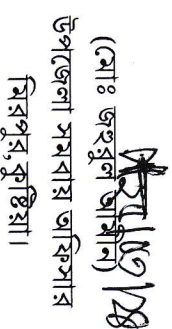 (মোঃ জহুরুল আমীন)
উপজেলা সমবায় অফিসার
মিরপুর, কুষ্টিয়া।